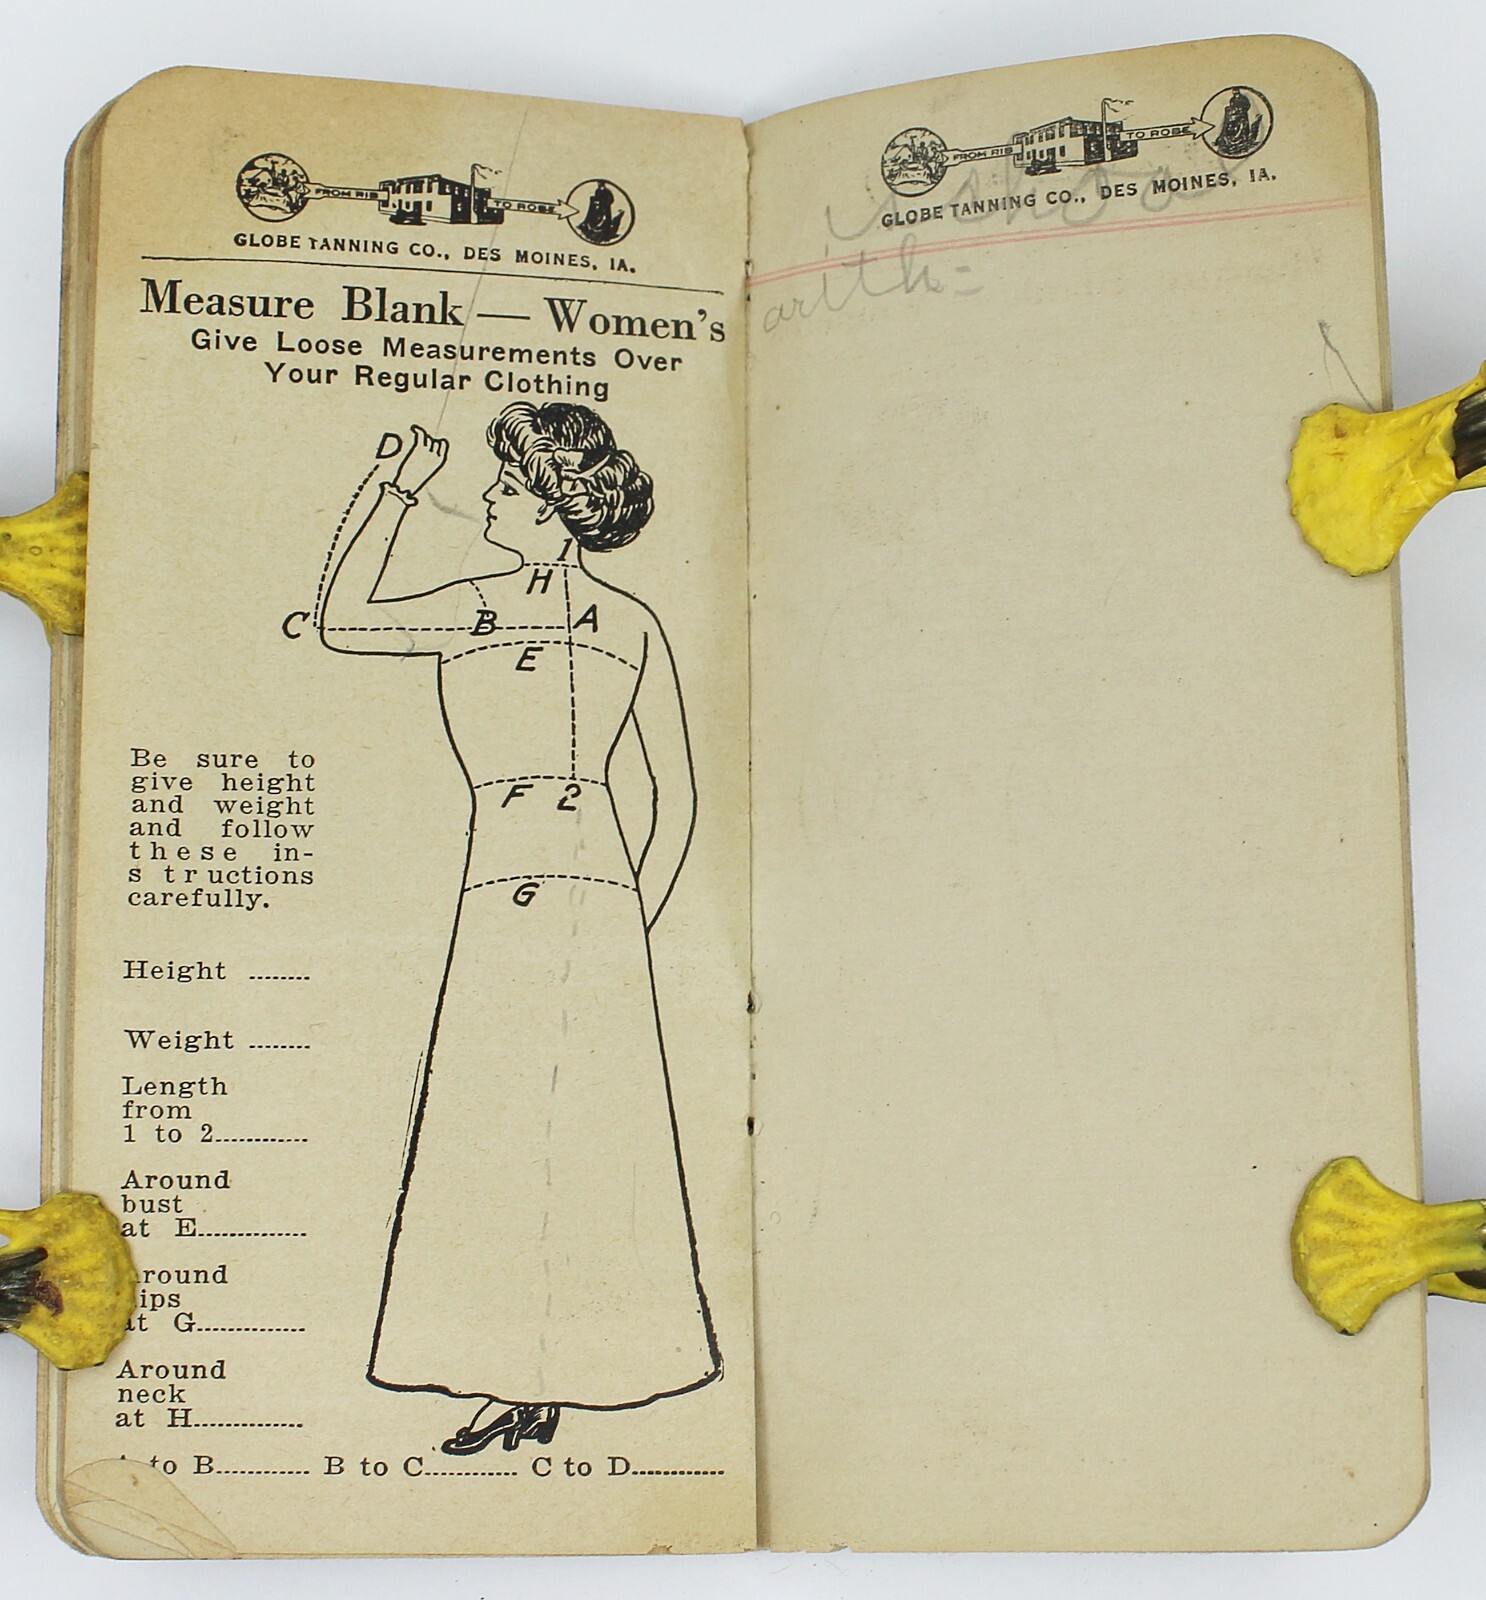 FROM RIB TO ROBE
GLOBE TANNING CO., DES MOINES, IA.
Measure Blank — Women's
Give Loose Measurements Over
Your Regular Clothing
D
1
H
C
B
A
E
F
2
G
Be sure to
give height
and weight
and follow
these in-
structions
carefully.
Height ........
Weight ........
Length
from
1 to 2............
Around
bust
at E..............
round
ips
at G..............
Around
neck
at H..............
to B............ B to C............ C to D............
FROM RIB TO ROBE
GLOBE TANNING CO., DES MOINES, IA.
arith-